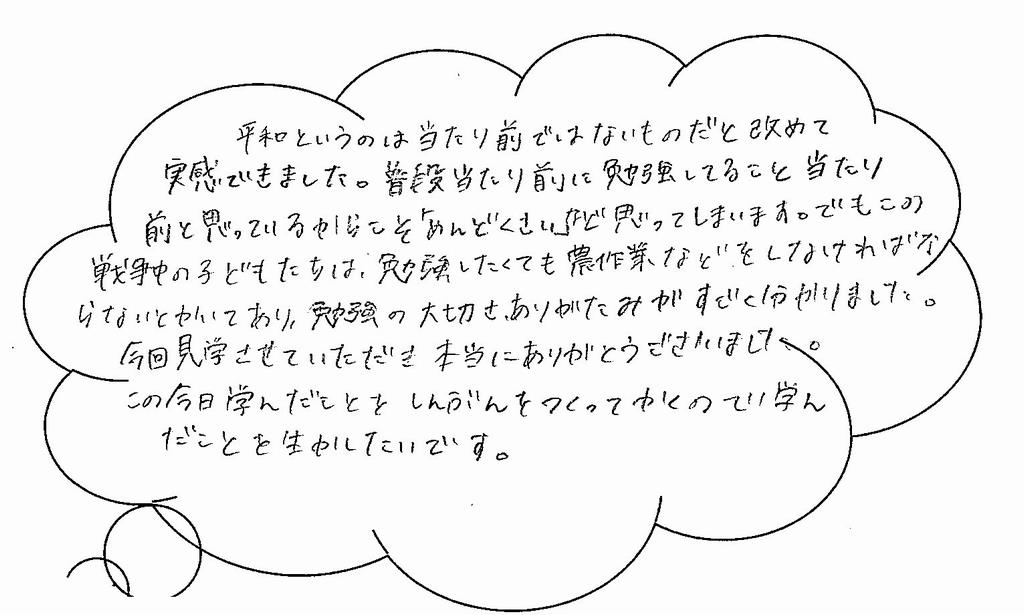 平和というのは当たり前ではないものだと改めて
実感できました。普段当たり前に勉強してること当たり
前と思っているからこそ「めんどくさい」など思ってしまいます。でもこの
戦争中の子どもたちは、勉強したくても農作業などをしなければな
らないとかいてあり、勉強の大切さ、ありがたみがすごく分かりました。
今回見学させていただき本当にありがとうございました。
この今日学んだことをしんぶんをつくってかくので学ん
だことを生かしたいです。